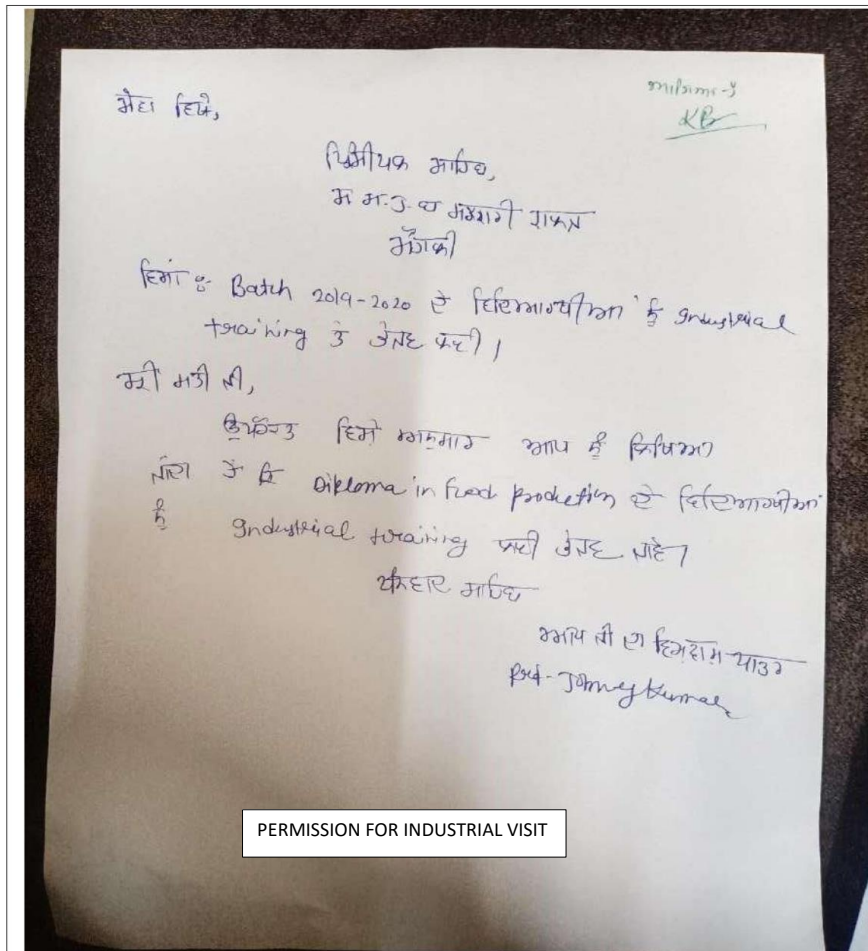 ਸੇਵਾ ਵਿਖੇ,
ਆਗਿਆ ਹੈ
KB
ਪ੍ਰਿੰਸੀਪਲ ਸਾਹਿਬ,
ਸਰਕਾਰੀ ਕਾਲਜ
ਵਿਸ਼ਾ : Batch 2019-2020 ਦੇ ਵਿਦਿਆਰਥੀਆਂ ਨੂੰ Industrial
training ਤੇ ਭੇਜਣ ਲਈ।
ਸ੍ਰੀ ਮਤੀ ਜੀ,
ਉਪਰੋਕਤ ਵਿਸ਼ੇ ਅਨੁਸਾਰ ਆਪ ਨੂੰ ਲਿਖਿਆ
ਜਾਂਦਾ ਹੈ ਕਿ Diploma in Food production ਦੇ ਵਿਦਿਆਰਥੀਆਂ
ਨੂੰ Industrial training ਲਈ ਭੇਜਣ ਜਾਵੇ।
ਧੰਨਵਾਦ ਸਾਹਿਤ
ਆਪ ਜੀ ਦਾ ਵਿਸ਼ਵਾਸ਼ ਪਾਤਰ
Prof- Johney Kumar
PERMISSION FOR INDUSTRIAL VISIT